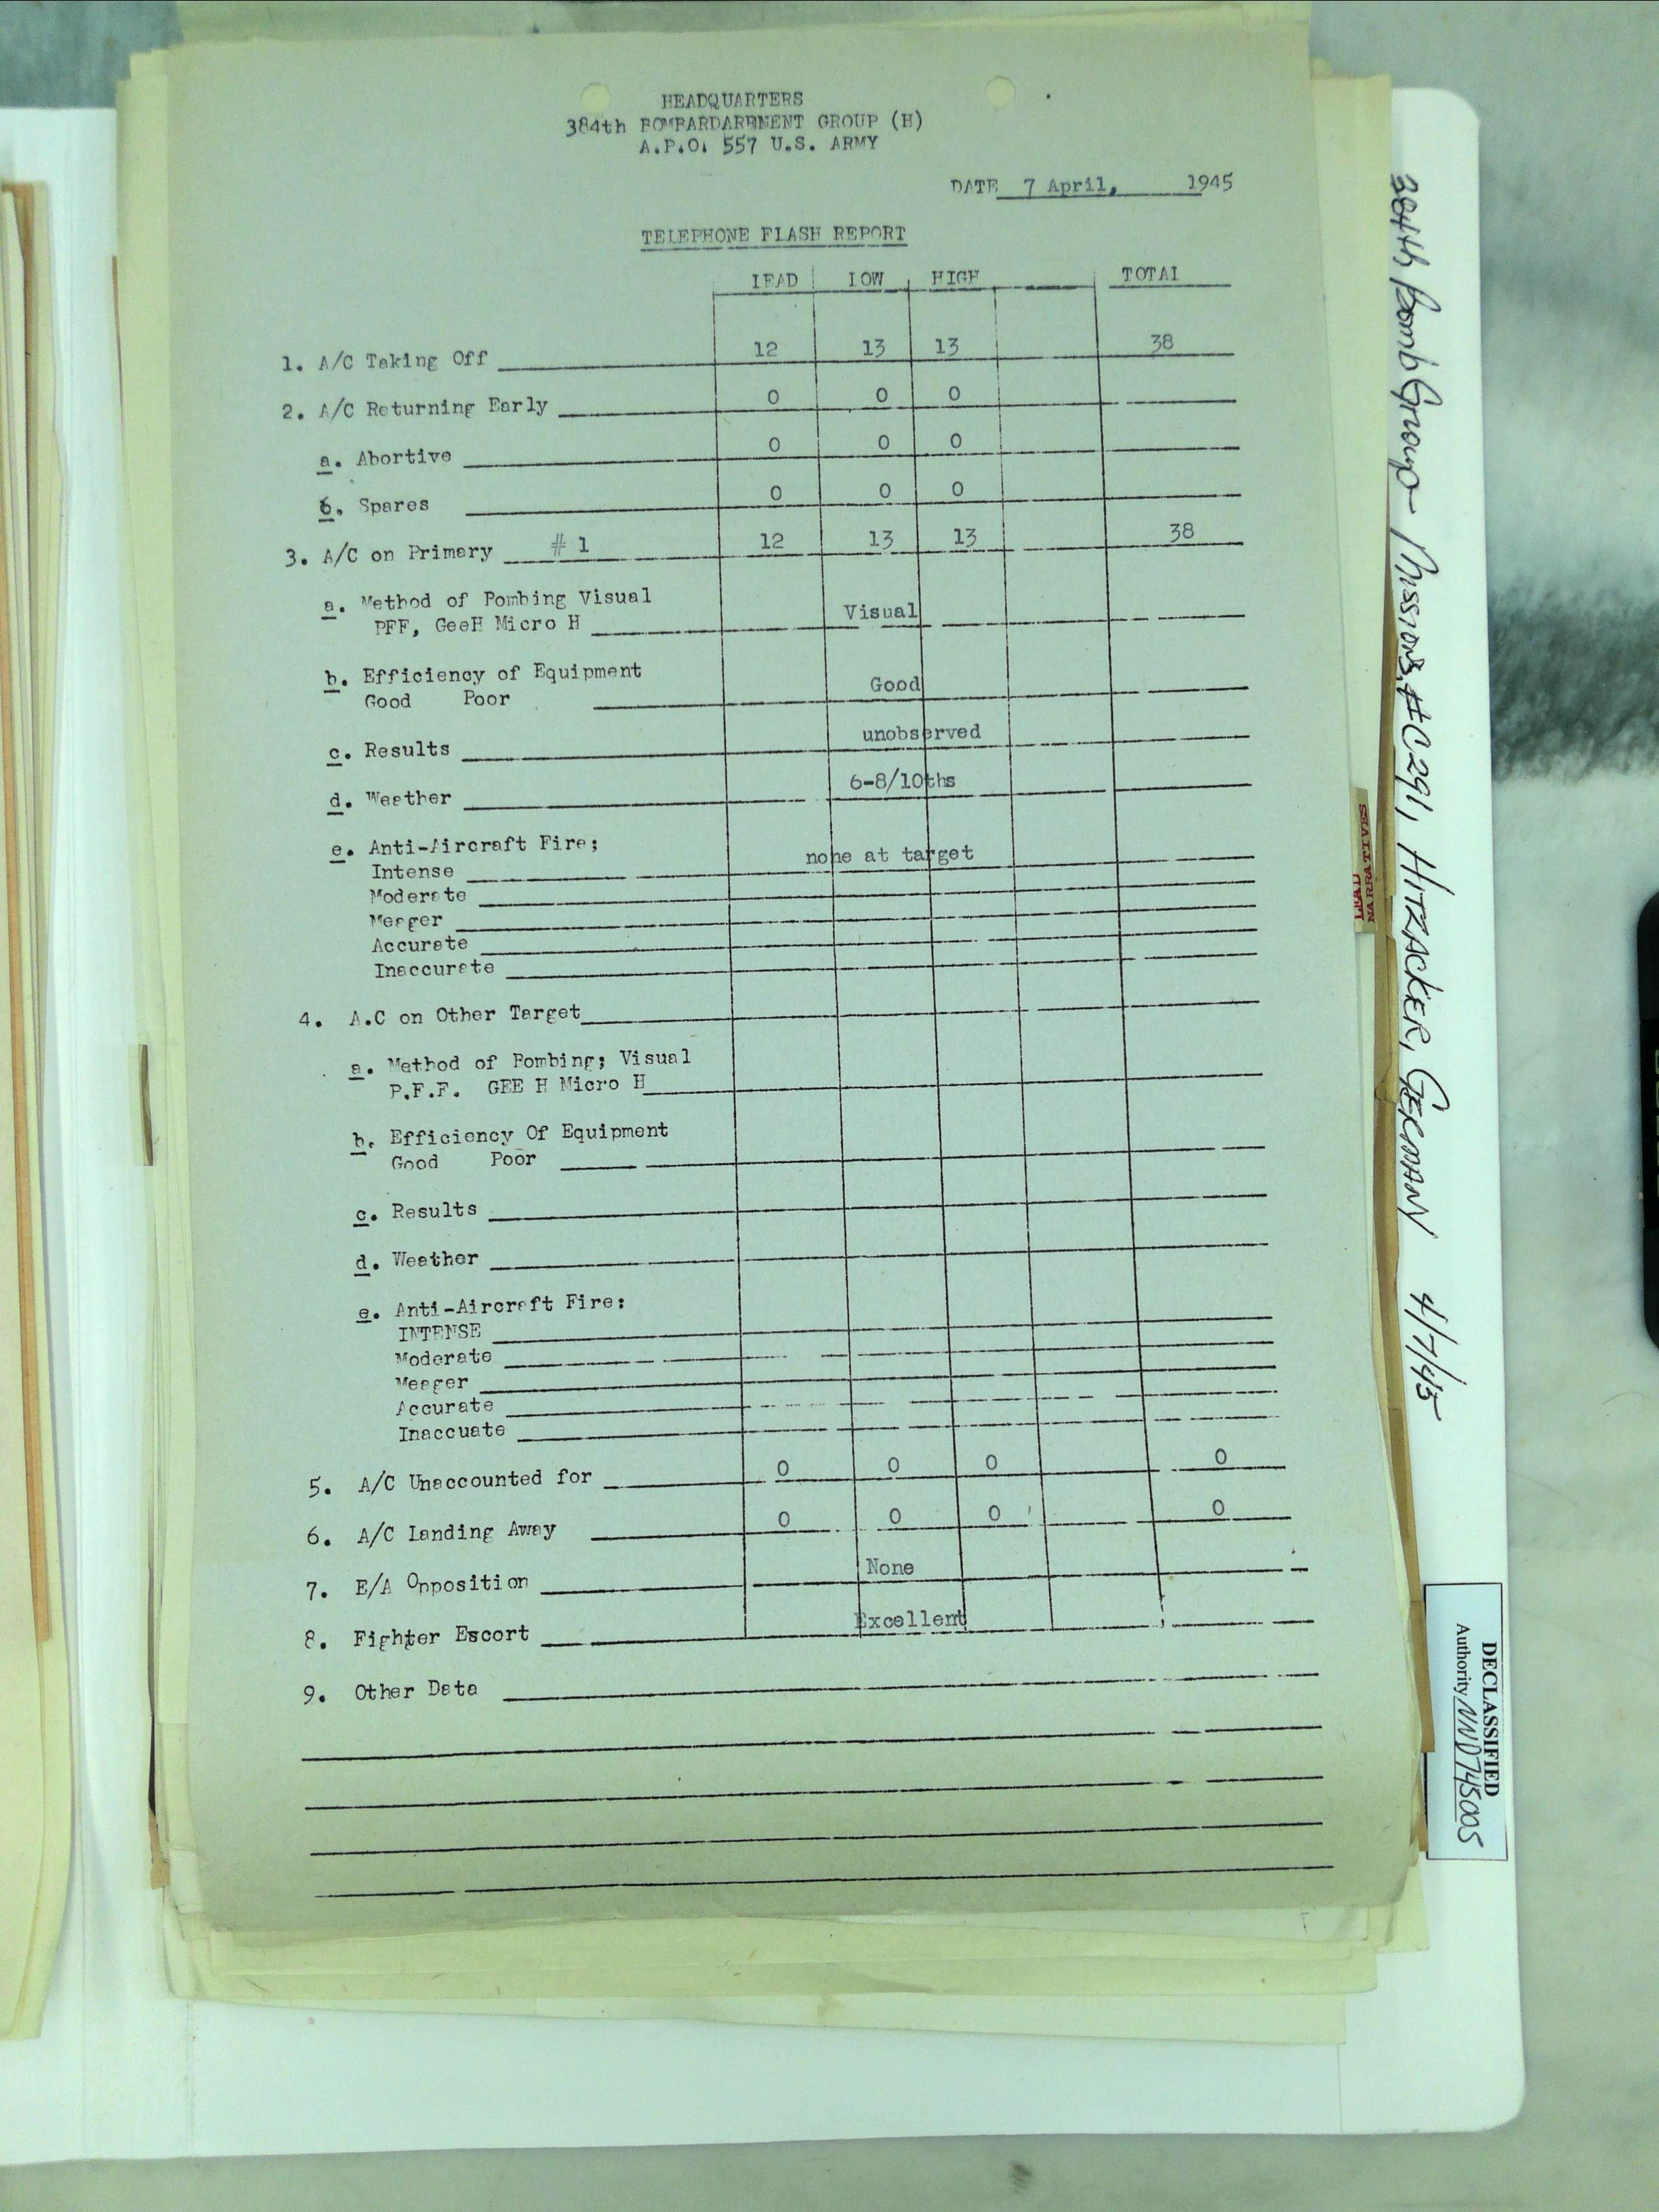 HEADQUARTERS
384th BOMBARDARBMENT GROUP (H)
A.P.O. 557 U.S. ARMY
DATE 7 April, 1945
TELEPHONE FLASH REPORT
LEAD LOW HIGH TOTAL
1. A/C Taking Off 12 13 13 38
2. A/C Returning Early 0 0 0
a. Abortive 0 0 0
b. Spares 0 0 0
3. A/C on Primary #1 12 13 13 38
a. Method of Bombing Visual
PFF, GeeH Micro H Visual
b. Efficiency of Equipment
Good Poor Good
c. Results unobserved
d. Weather 6-8/10ths
e. Anti-Aircraft Fire;
Intense none at target
Moderate
Meager
Accurate
Inaccurate
4. A.C on Other Target
a. Method of Bombing; Visual
P.F.F. GEE H Micro H
b. Efficiency Of Equipment
Good Poor
c. Results
d. Weather
e. Anti-Aircraft Fire:
INTENSE
Moderate
Meager
Accurate
Inaccuate
5. A/C Unaccounted for 0 0 0 0
6. A/C Landing Away 0 0 0 0
7. E/A Opposition None
8. Fighter Escort Excellent
9. Other Data
LEAD
NARRATIVES
384th Bomb Group Missions #C291, HITZACKER, GERMAN 4/7/45
DECLASSIFIED
Authority NND745005